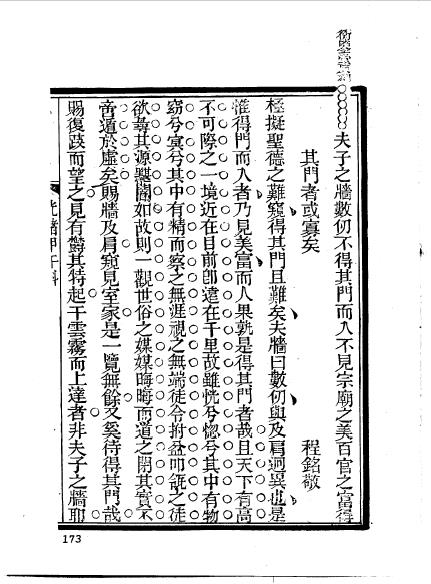 夫子之牆數仞不得其門而入不見宗廟之美百官之富得
其門者或寡矣
程銘敬
極擬聖德之難窺得其門且難矣夫牆曰數仞與及肩迥異也是
惟得門而入者乃見美富而人果孰是得其門者哉且天下有高
不可際之一境近在目前卽遠在千里故雖恍兮惚兮其中有物
窈兮冥兮其中有精而察之無涯視之無端徒令拊盆叩瓴之徒
欲尋其源闃如故則一觀世俗之媒媒晦晦而道之閉其實不
啻道於虛矣賜牆及肩窺見室家是一覽無餘又奚待得其門哉
賜復跂而望之見有鬱其特起干雲霧而上達者非夫子之牆耶
光緖甲子科
173